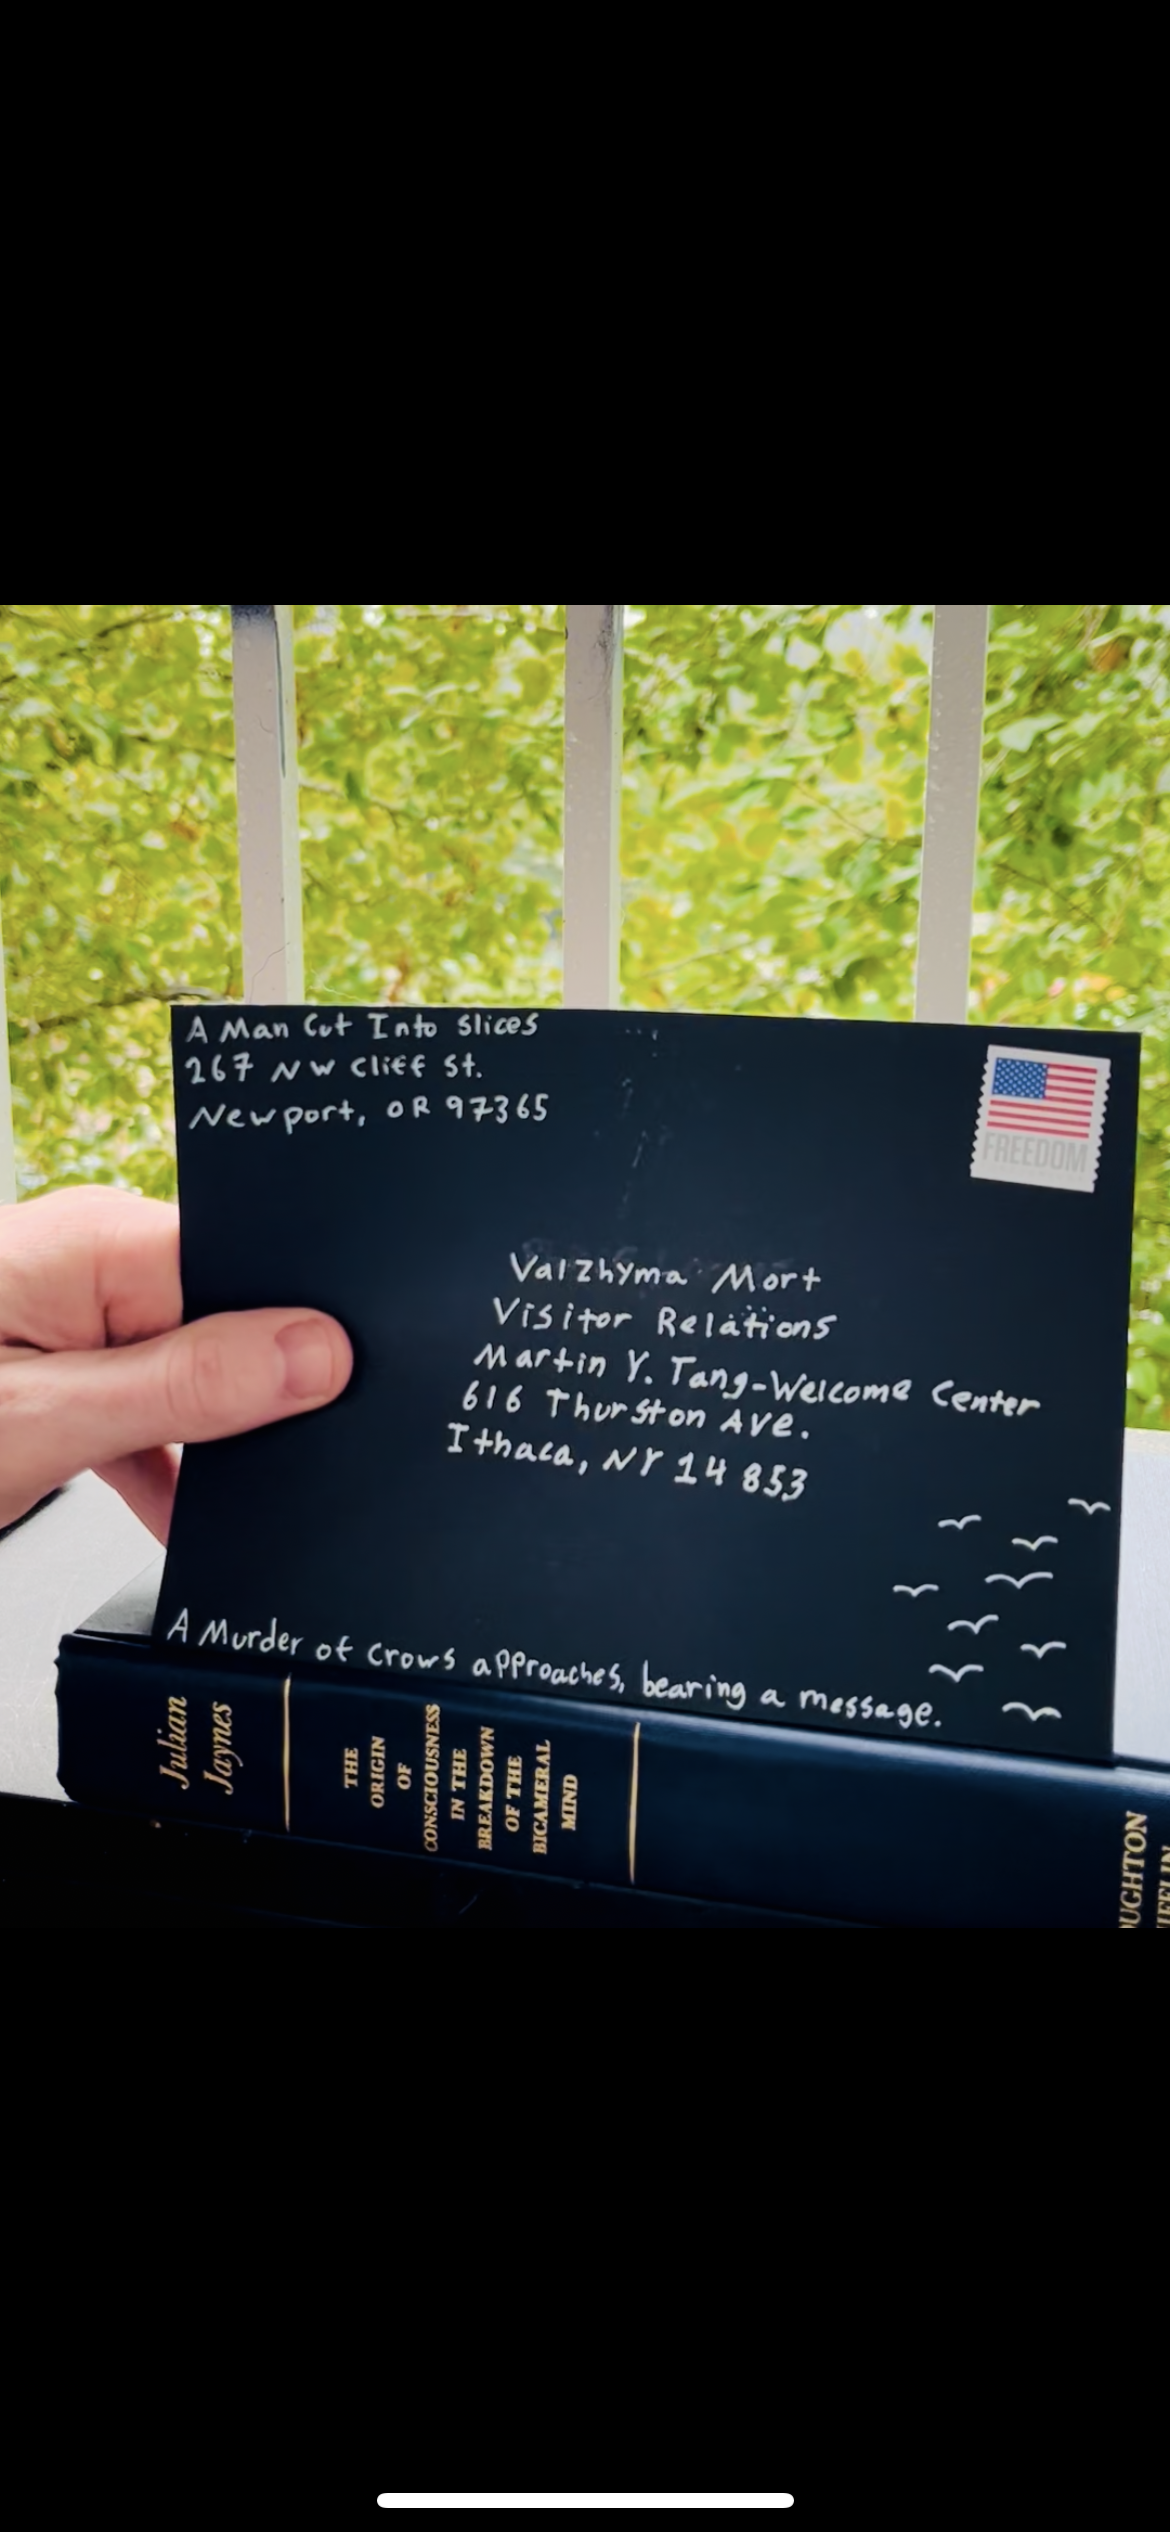 A Man Cut Into Slices
267 NW Cliff St.
Newport, OR 97365
FREEDOM
Valzhyma Mort
Visitor Relations
Martin Y. Tang-Welcome Center
616 Thurston Ave.
Ithaca, NY 14853
A Murder of Crows approaches, bearing a message.
Julian
Jaynes
THE
ORIGIN
OF
CONSCIOUSNESS
IN THE
BREAKDOWN
OF THE
BICAMERAL
MIND